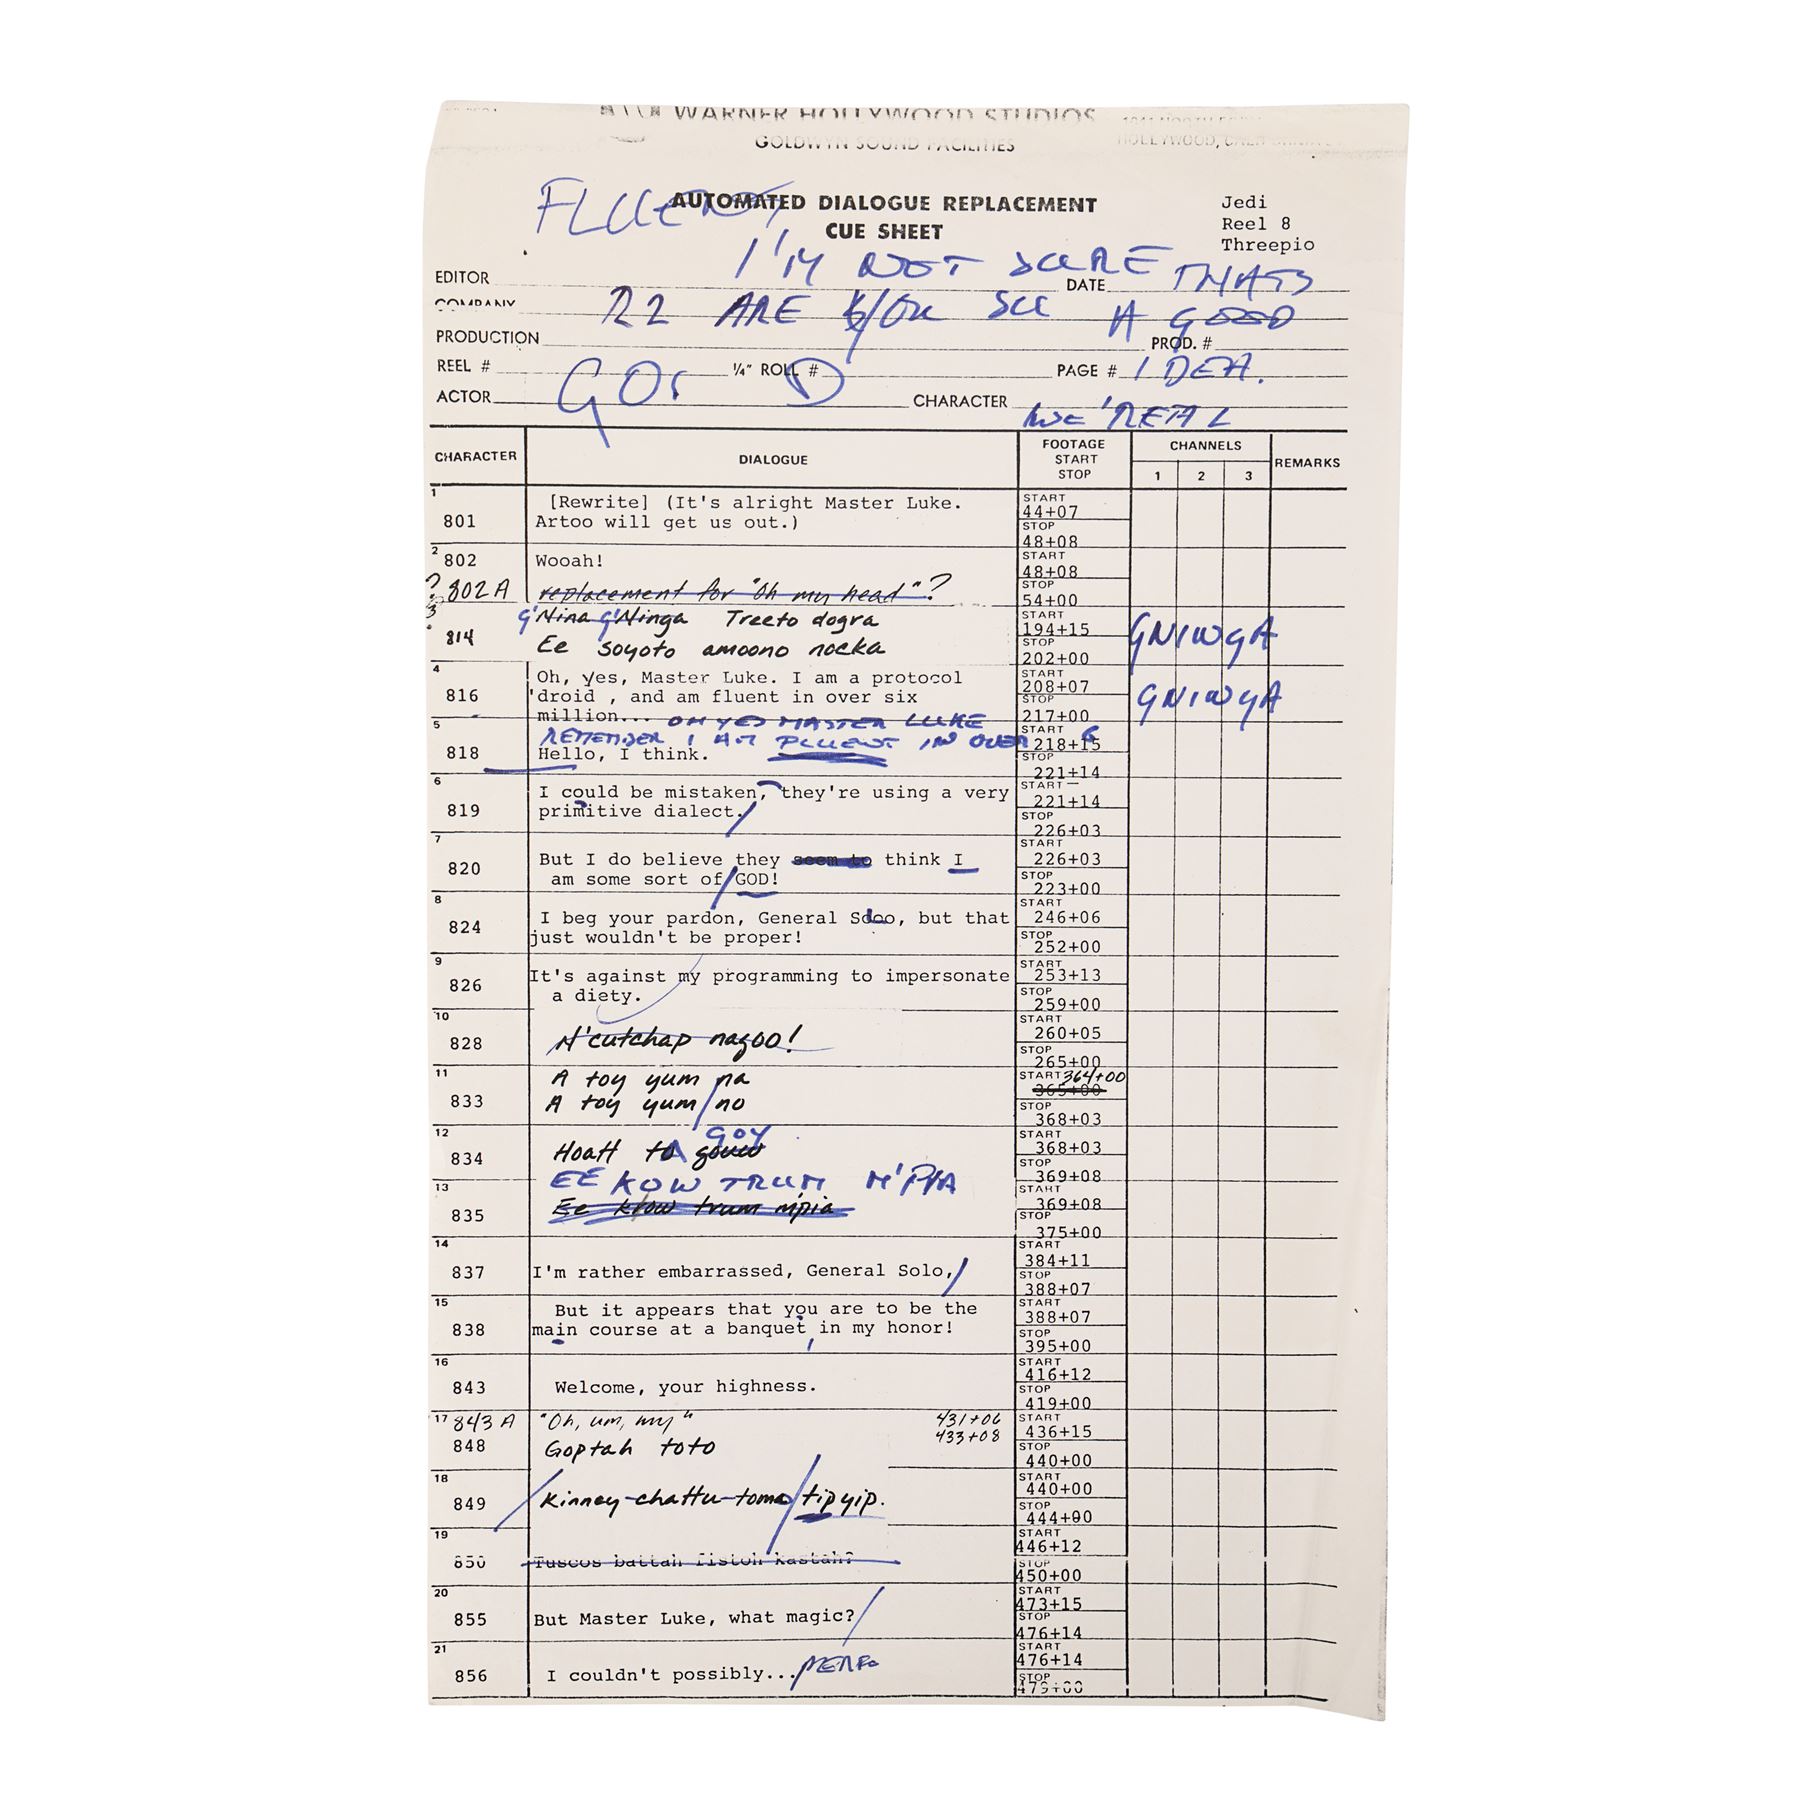 WARNER HOLLYWOOD STUDIOS
GOLDWYN SOUND FACILITIES
HOLLYWOOD,
AUTOMATED DIALOGUE REPLACEMENT
CUE SHEET
Jedi
Reel 8
Threepio
I'M NOT SURE THATS
EDITOR DATE
R2 ARE YOU SU A GOOD
COMPANY
PRODUCTION PROD. #
REEL # ¼" ROLL # PAGE # IDEA.
GOD
ACTOR CHARACTER
WE'RE
CHARACTER DIALOGUE FOOTAGE START STOP CHANNELS 1 2 3 REMARKS
1 801 [Rewrite] (It's alright Master Luke. START 44+07
Artoo will get us out.) STOP 48+08
2 802 Wooah! START 48+08
? 802A replacement for "Oh my head"? STOP 54+00
3 G'Nina G'Ninga Treeto dogra START 194+15 GNIWGA
814 Ee soyoto amoono nocka STOP 202+00
4 Oh, yes, Master Luke. I am a protocol START 208+07
816 'droid , and am fluent in over six STOP 217+00 GNIWGA
million... OH YES MASTER LUKE
5 REMEMBER I AM FLUENT IN OVER 6 START 218+15
818 Hello, I think. STOP 221+14
6 I could be mistaken, they're using a very START 221+14
819 primitive dialect. STOP 226+03
7 820 But I do believe they seem to think I START 226+03
am some sort of GOD! STOP 223+00
8 824 I beg your pardon, General Soloo, but that START 246+06
just wouldn't be proper! STOP 252+00
9 826 It's against my programming to impersonate START 253+13
a diety. STOP 259+00
10 828 N'cutchap nagoo! START 260+05
STOP 265+00
11 A toy yum na START 364+00 365+00
833 A toy yum no STOP 368+03
12 GOY START 368+03
834 Hoatt tA gouw STOP 369+08
EE KOW TRUM M'PIA
13 835 Ee klow trum m'pia START 369+08
STOP 375+00
14 START 384+11
837 I'm rather embarrassed, General Solo, STOP 388+07
15 But it appears that you are to be the START 388+07
838 main course at a banquet, in my honor! STOP 395+00
16 START 416+12
843 Welcome, your highness. STOP 419+00
17 843A "Oh, um, my" 431+06 START 436+15
433+08
848 Goptah toto STOP 440+00
18 START 440+00
849 Kinney-chattu-toma tip yip. STOP 444+00
19 START 446+12
850 Tuscos battah fistoh kastah? STOP 450+00
20 START 473+15
855 But Master Luke, what magic? STOP 476+14
21 START 476+14
856 I couldn't possibly... STOP 479+00